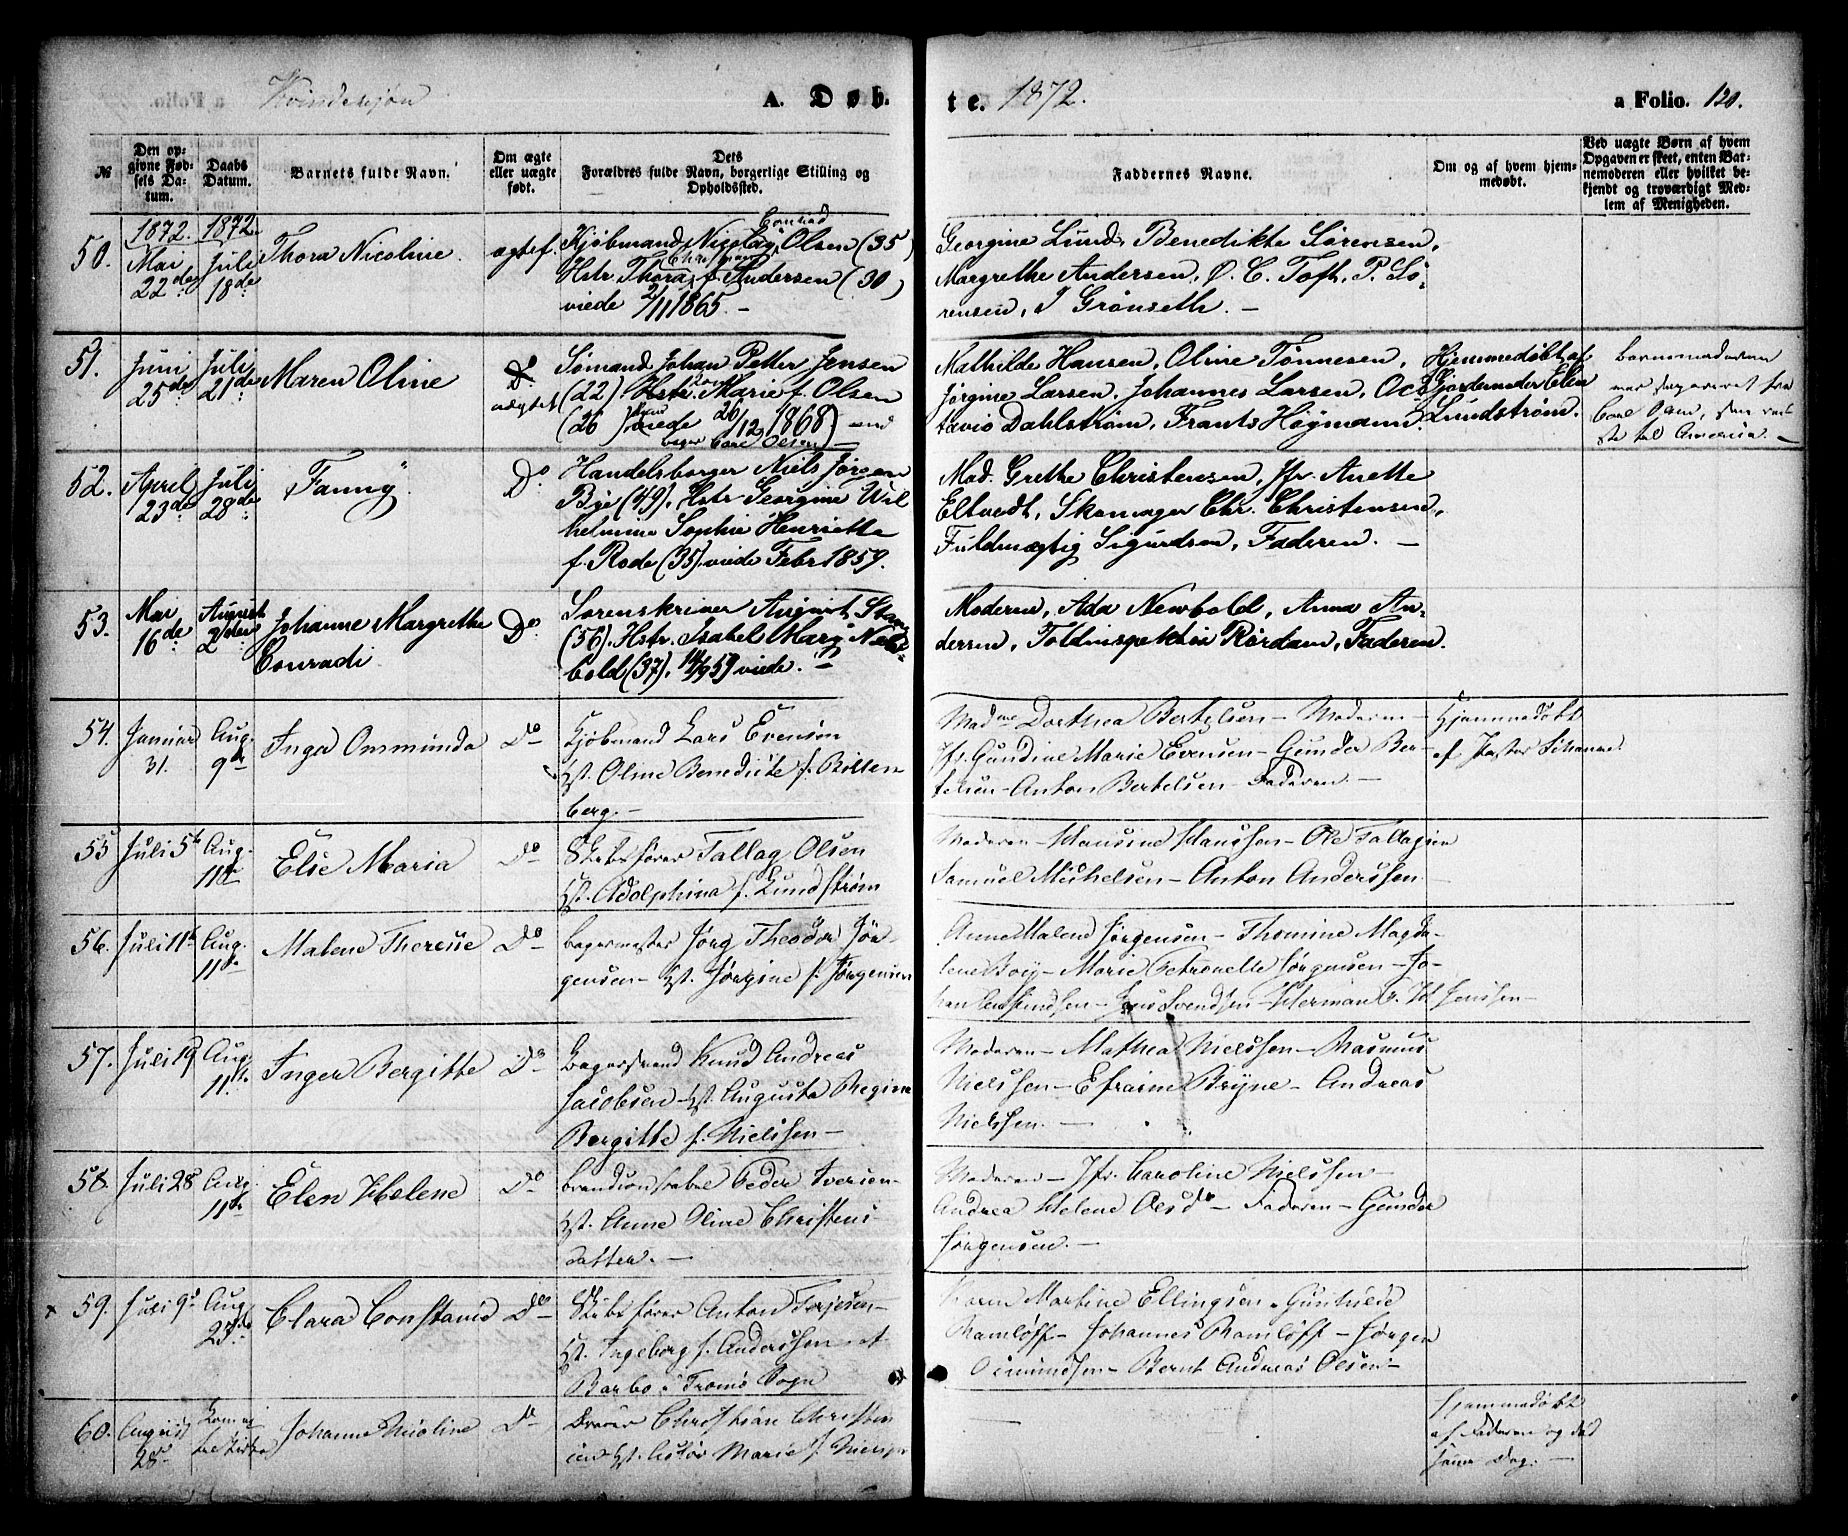 Kvindekjøn
A. Døb
te. 1872.
a Folio. 120.
№
Den opgivne Fødsels Datum.
Daabs Datum.
Barnets fulde Navn.
Om ægte eller uægte født.
Dets Forældres fulde Navn, borgerlige Stilling og Opholdssted.
Faddernes Navne.
Om og af hvem hjemmedøbt.
Ved uægte Børn af hvem Opgaven er skeet, enten Barnemoderen eller hvilket bekjendt og troværdigt Medlem af Menigheden.
50.
1872. Mai 22de
1872. Juli 18de
Thora Nicoline
ægtef.
Kjøbmand Nicolay Conrad Olsen (35)
Hstr. Thora f. Andersen (30)
viede 2/11 1865. —
Georgine Lund, Benedikte Sørensen,
Margrethe Andersen, O. C. Toft, P. Sø-
rensen, J Grønseth. —
51.
Juni 25de
Juli 21de
Maren Oline
Do uægtef
Sømand Johan Petter Jensen
(22) Hstr. Marie f. Olsen
(26) viede 26/12 1868) med
Carl Olsen —
Mathilde Hansen, Oline Tønnesen,
Jørgine Larsen, Johannes Larsen, Oc-
tavio Dahlstrøm, Frants Høgmann.
Hjemmedøbt af
Gjordemoder Elen
Lundstrøm.
barnemoderen
var separeret fra
ste til America. —
52.
April 23de
Juli 28de
Fanny
Do
Handelsborger Niels Jørgen
Bye (49), Hstr Georgine Wil
helmine Sophie Henriette
f. Rode (35) viede Febr 1859.
Mad. Grethe Christensen, Jfr. Anette
Eltvedt, Skomager Chr. Christensen,
Fuldmægtig Sigurdsen, Faderen. —
53.
Mai 16de
August 2den
Johanne Margrethe
Conradi
Do
Sorenskriver August Stang
(56). Hstr. Isabel Mary New-
bold (37). 14/9 59 viede.
Moderen, Ada Newbold, Anna An-
dersen, Toldinspektør Rørdam, Faderen.
54.
Januar 31.
Aug. 9de
Inga Osmunda
Do
Kjøbmand Lars Evensen
Hst. Oline Benedicte f. Billen
berg. —
Madme Dorthea Bertelsen — Moderen —
Jfr. Gundine Marie Evensen — Gunder Ber-
telsen — Anton Bertelsen — Faderen. —
Hjemmedøbt
af Pastor
55
Juli 5te
Aug. 11te
Else Maria
Do
Skibsfører Tallag Olsen
Hst. Adolphina f. Lundstrøm
Moderen — Hansine Hanssen — Ole Tallagsen
Samuel Michelsen — Anton Anderssen
56.
Juli 11te
Aug. 11te
Malene Therese
Do
Bagermester Jørg Theodor Jør-
gensen — Hst. Jørgine f. Jørgensen
Anne Malene Jørgensen — Thomine Magda-
lene Boij — Marie Petronelle Jørgensen — Jo-
Jens Svendsen — Herman Jenssen —
57.
Juli 19
Aug. 11te
Inger Bergitte
Do
Bagersvend Knud Andreas
Jacobsen — Hst. Augusta Regine
Bergitte f. Nielssen —
Moderen — Mathea Nielssen — Rasmus
Nielssen — Efraime Bryne — Andreas
Nielssen. —
58.
Juli 28
Aug. 11te
Elen Helene
Do
Brandconstabel Peder Iversen —
Hst. Anne Oline Christens-
datter. —
Moderen — Jfr. Caroline Nielssen
Andrea Helene Olsdr — Faderen — Gunder
Jørgensen. —
× 59.
Juli 9de
Aug 25de
Clara Constance
Do
Skibsfører Anton Terjesen —
Hst. Ingeborg f. Anderssen — af
Barbo i Tromø Sogn
Karen Martine Ellingsen — Gunhilde
Ramløff — Johannes Ramløff — Jørgen
Osmundsen — Bernt Andreas Olsen —
60.
August 28de
Johanne Nicoline
Do
Christian Christen
sen Hst. Marie f. Nielsen
Hjemmedøbt
af Faderen og død
samme Dag. —